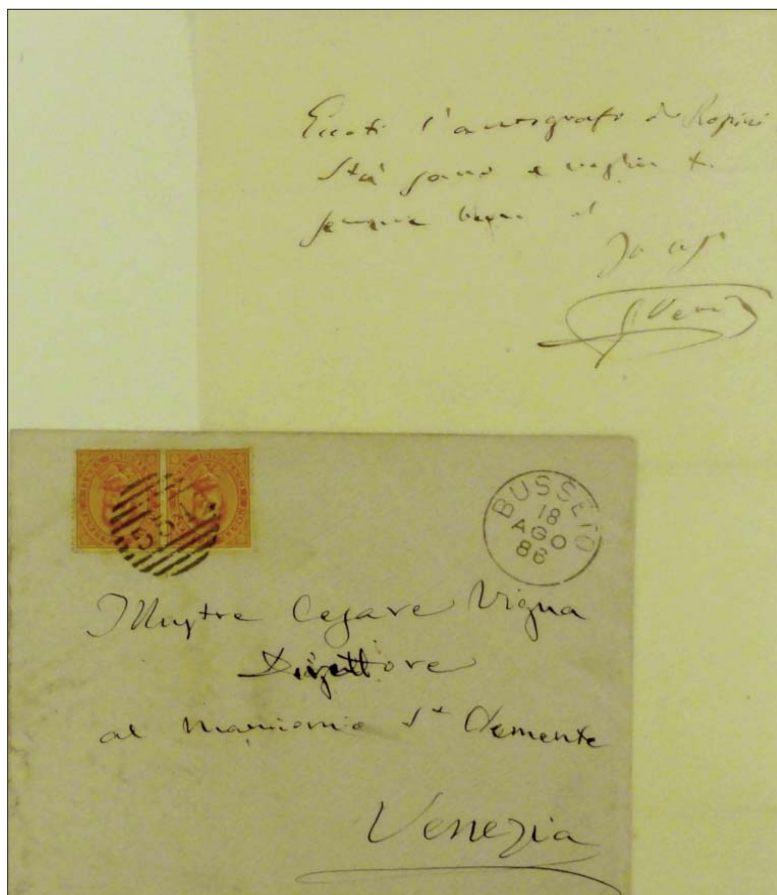 Eccoti l'autografo di Rossini
Stà sano e voglimi
sempre bene
G Verdi
BUSSETO
18
AGO
86
554
Illustre Cesare Vigna
Direttore
al manicomio Sn Clemente
Venezia